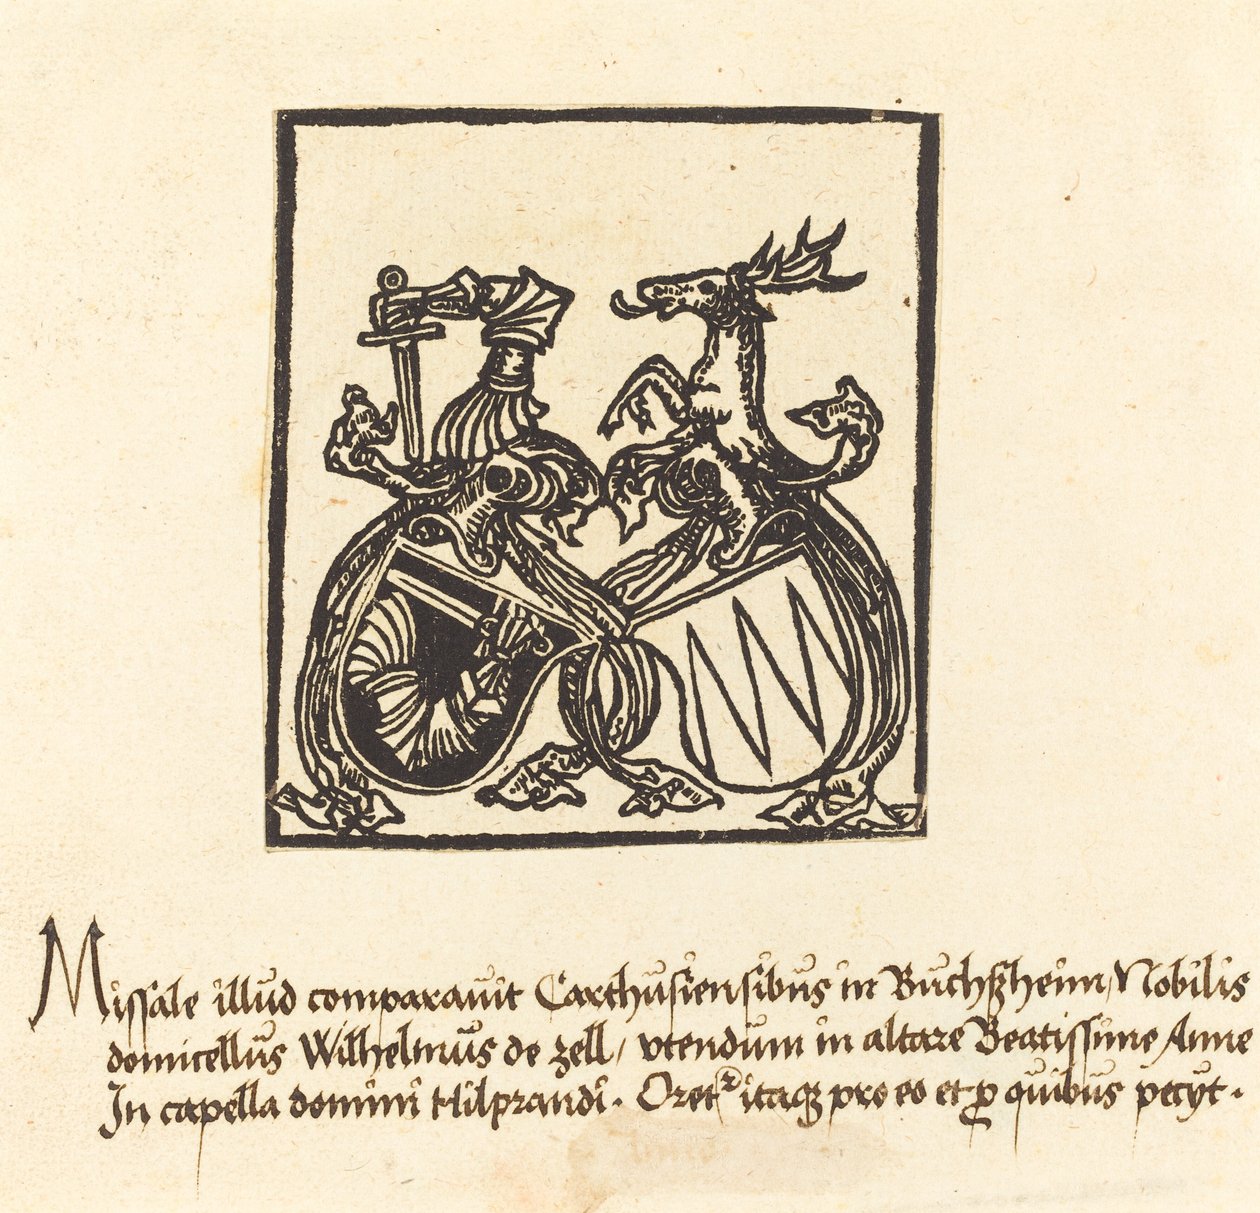 Missale illud comparauit Carthusiensibus in Buchszheim, Nobilis
domicellus Wilhelmus de zell, vtendum in altare Beatissime Anne
In capella domini Hilprandi. Oretr itaqꝫ pro eo et ꝓ quibus petyt.